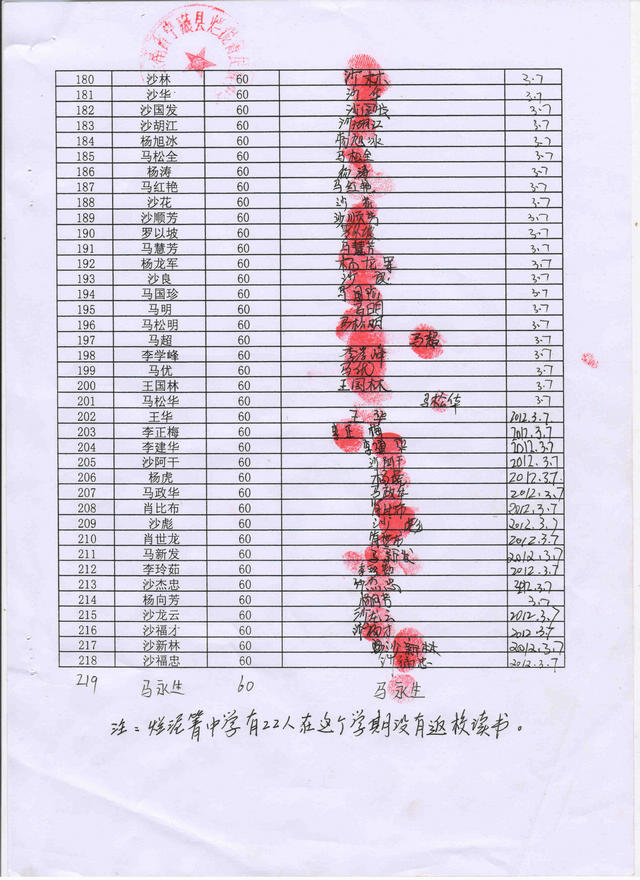 180 沙林 60 沙林 3.7
181 沙华 60 沙华 3.7
182 沙国发 60 沙国发 3.7
183 沙胡江 60 沙胡江 3.7
184 杨旭冰 60 杨旭冰 3.7
185 马松全 60 马松全 3.7
186 杨涛 60 杨涛 3.7
187 马红艳 60 马红艳 3.7
188 沙花 60 沙花 3.7
189 沙顺芳 60 沙顺芳 3.7
190 罗以坡 60 3.7
191 马慧芳 60 马慧芳 3.7
192 杨龙军 60 杨龙军 3.7
193 沙良 60 沙良 3.7
194 马国珍 60 3.7
195 马明 60 马明 3.7
196 马松明 60 马松明 3.7
197 马超 60 马超 3.7
198 李学峰 60 李学峰 3.7
199 马优 60 马优 3.7
200 王国林 60 王国林 3.7
201 马松华 60 马松华 3.7
202 王华 60 王华 2012.3.7
203 李正梅 60 李正梅 2012.3.7
204 李建华 60 李建华 2012.3.7
205 沙阿干 60 沙阿干 2012.3.7
206 杨虎 60 杨虎 2012.3.7
207 马政华 60 马政华 2012.3.7
208 肖比布 60 肖比布 2012.3.7
209 沙彪 60 沙彪 2012.3.7
210 肖世龙 60 2012.3.7
211 马新发 60 马新发 2012.3.7
212 李玲茹 60 李玲茹 2012.3.7
213 沙杰忠 60 沙杰忠 2012.3.7
214 杨向芳 60 杨向芳 3.7
215 沙龙云 60 沙龙云 2012.3.7
216 沙福才 60 沙福才 2012.3.7
217 沙新林 60 沙新林 2012.3.7
218 沙福忠 60 沙福忠 2012.3.7
219 马永生 60 马永生
注：烂泥箐中学有22人在这个学期没有返校读书。